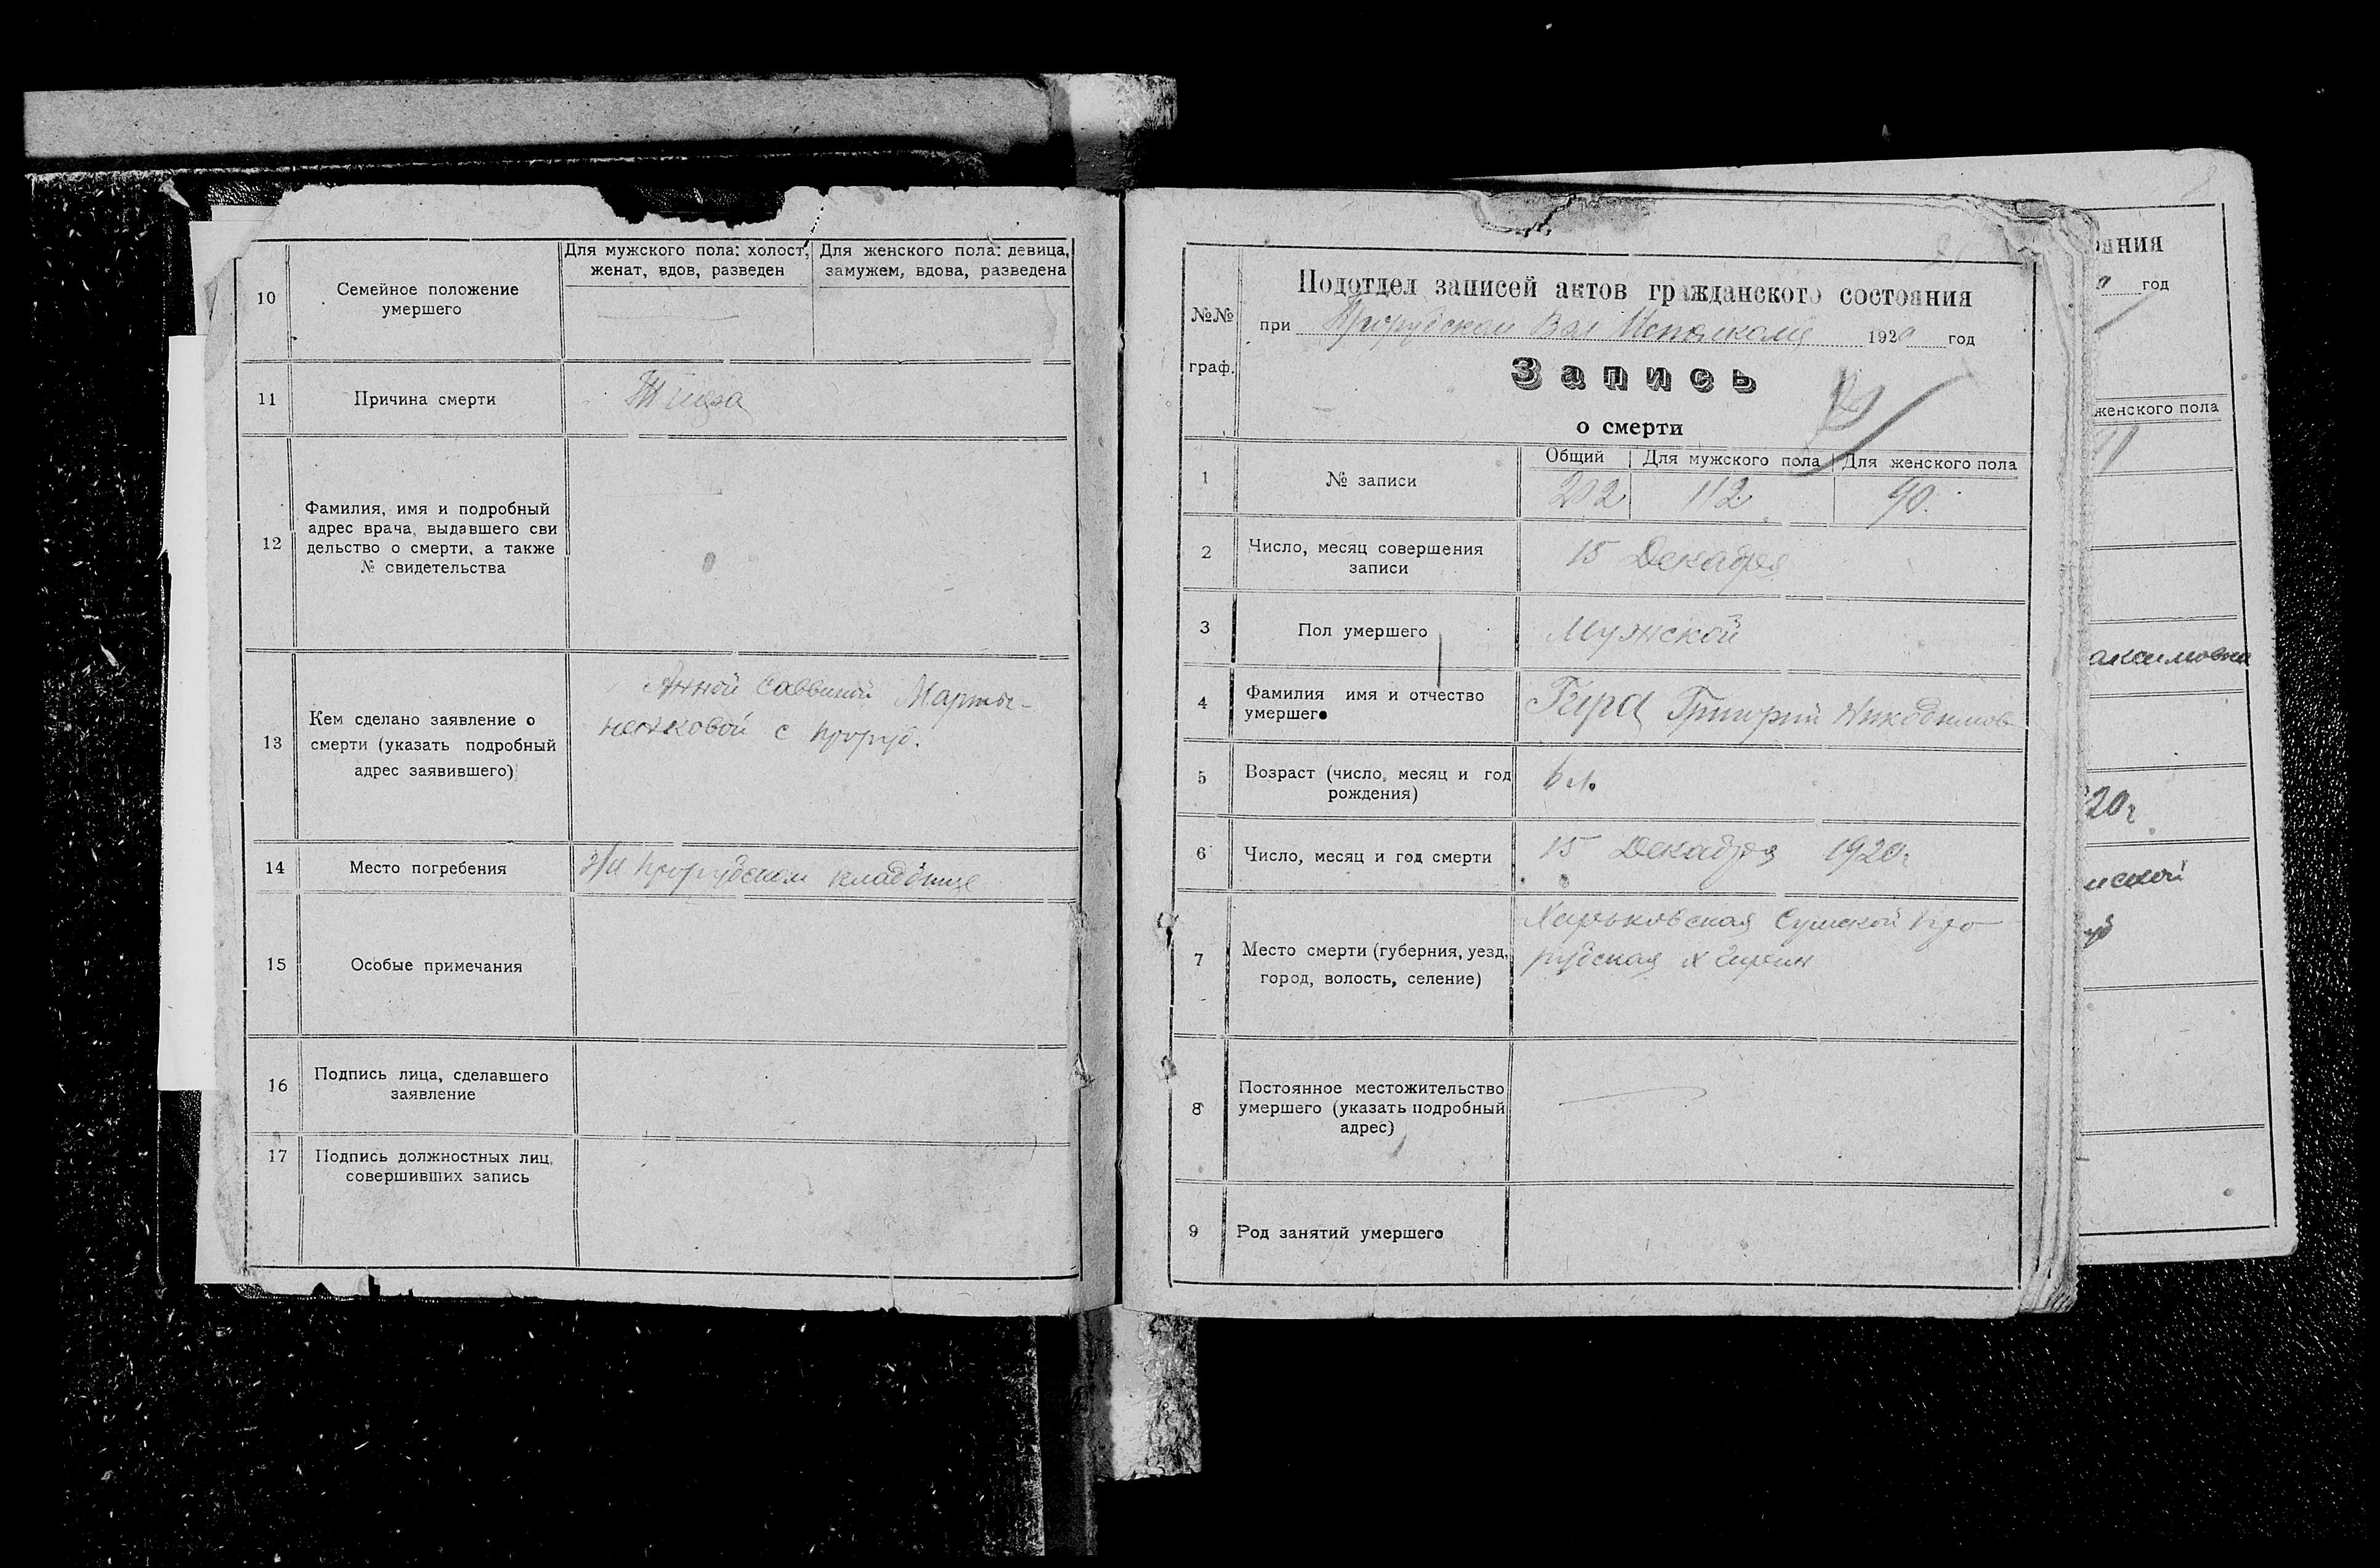 10
Семейное положение
умершего
Для мужского пола: холост,
женат, вдов, разведен
Для женского пола: девица,
замужем, вдова, разведена
11
Причина смерти
12
Фамилия, имя и подробный
адрес врача, выдавшего сви
дельство о смерти, а также
№ свидетельства
13
Кем сделано заявление о
смерти (указать подробный
адрес заявившего)
Анной Саввиной Марты-
ненковой с Прoруб.
14
Место погребения
на Прорубском кладбище
15
Особые примечания
16
Подпись лица, сделавшего
заявление
17
Подпись должностных лиц,
совершивших запись
№№
граф.
Подотдел записей актов гражданского состояния
при Прорубском Вол Исполкоме 1920 год
Запись
о смерти
1
№ записи
Общий
Для мужского пола
Для женского пола
202
112
90.
2
Число, месяц совершения
записи
15 Декабря
3
Пол умершего
Мужской
4
Фамилия имя и отчество
умершего
Гира Григорий Никодимов
5
Возраст (число, месяц и год
рождения)
6 л.
6
Число, месяц и год смерти
15 Декабря 1920 г
7
Место смерти (губерния, уезд,
город, волость, селение)
Харьковская Сумской Про
рубская х
8
Постоянное местожительство
умершего (указать подробный
адрес)
9
Род занятий умершего
ояния
год
женского пола
аксимовна
20 г